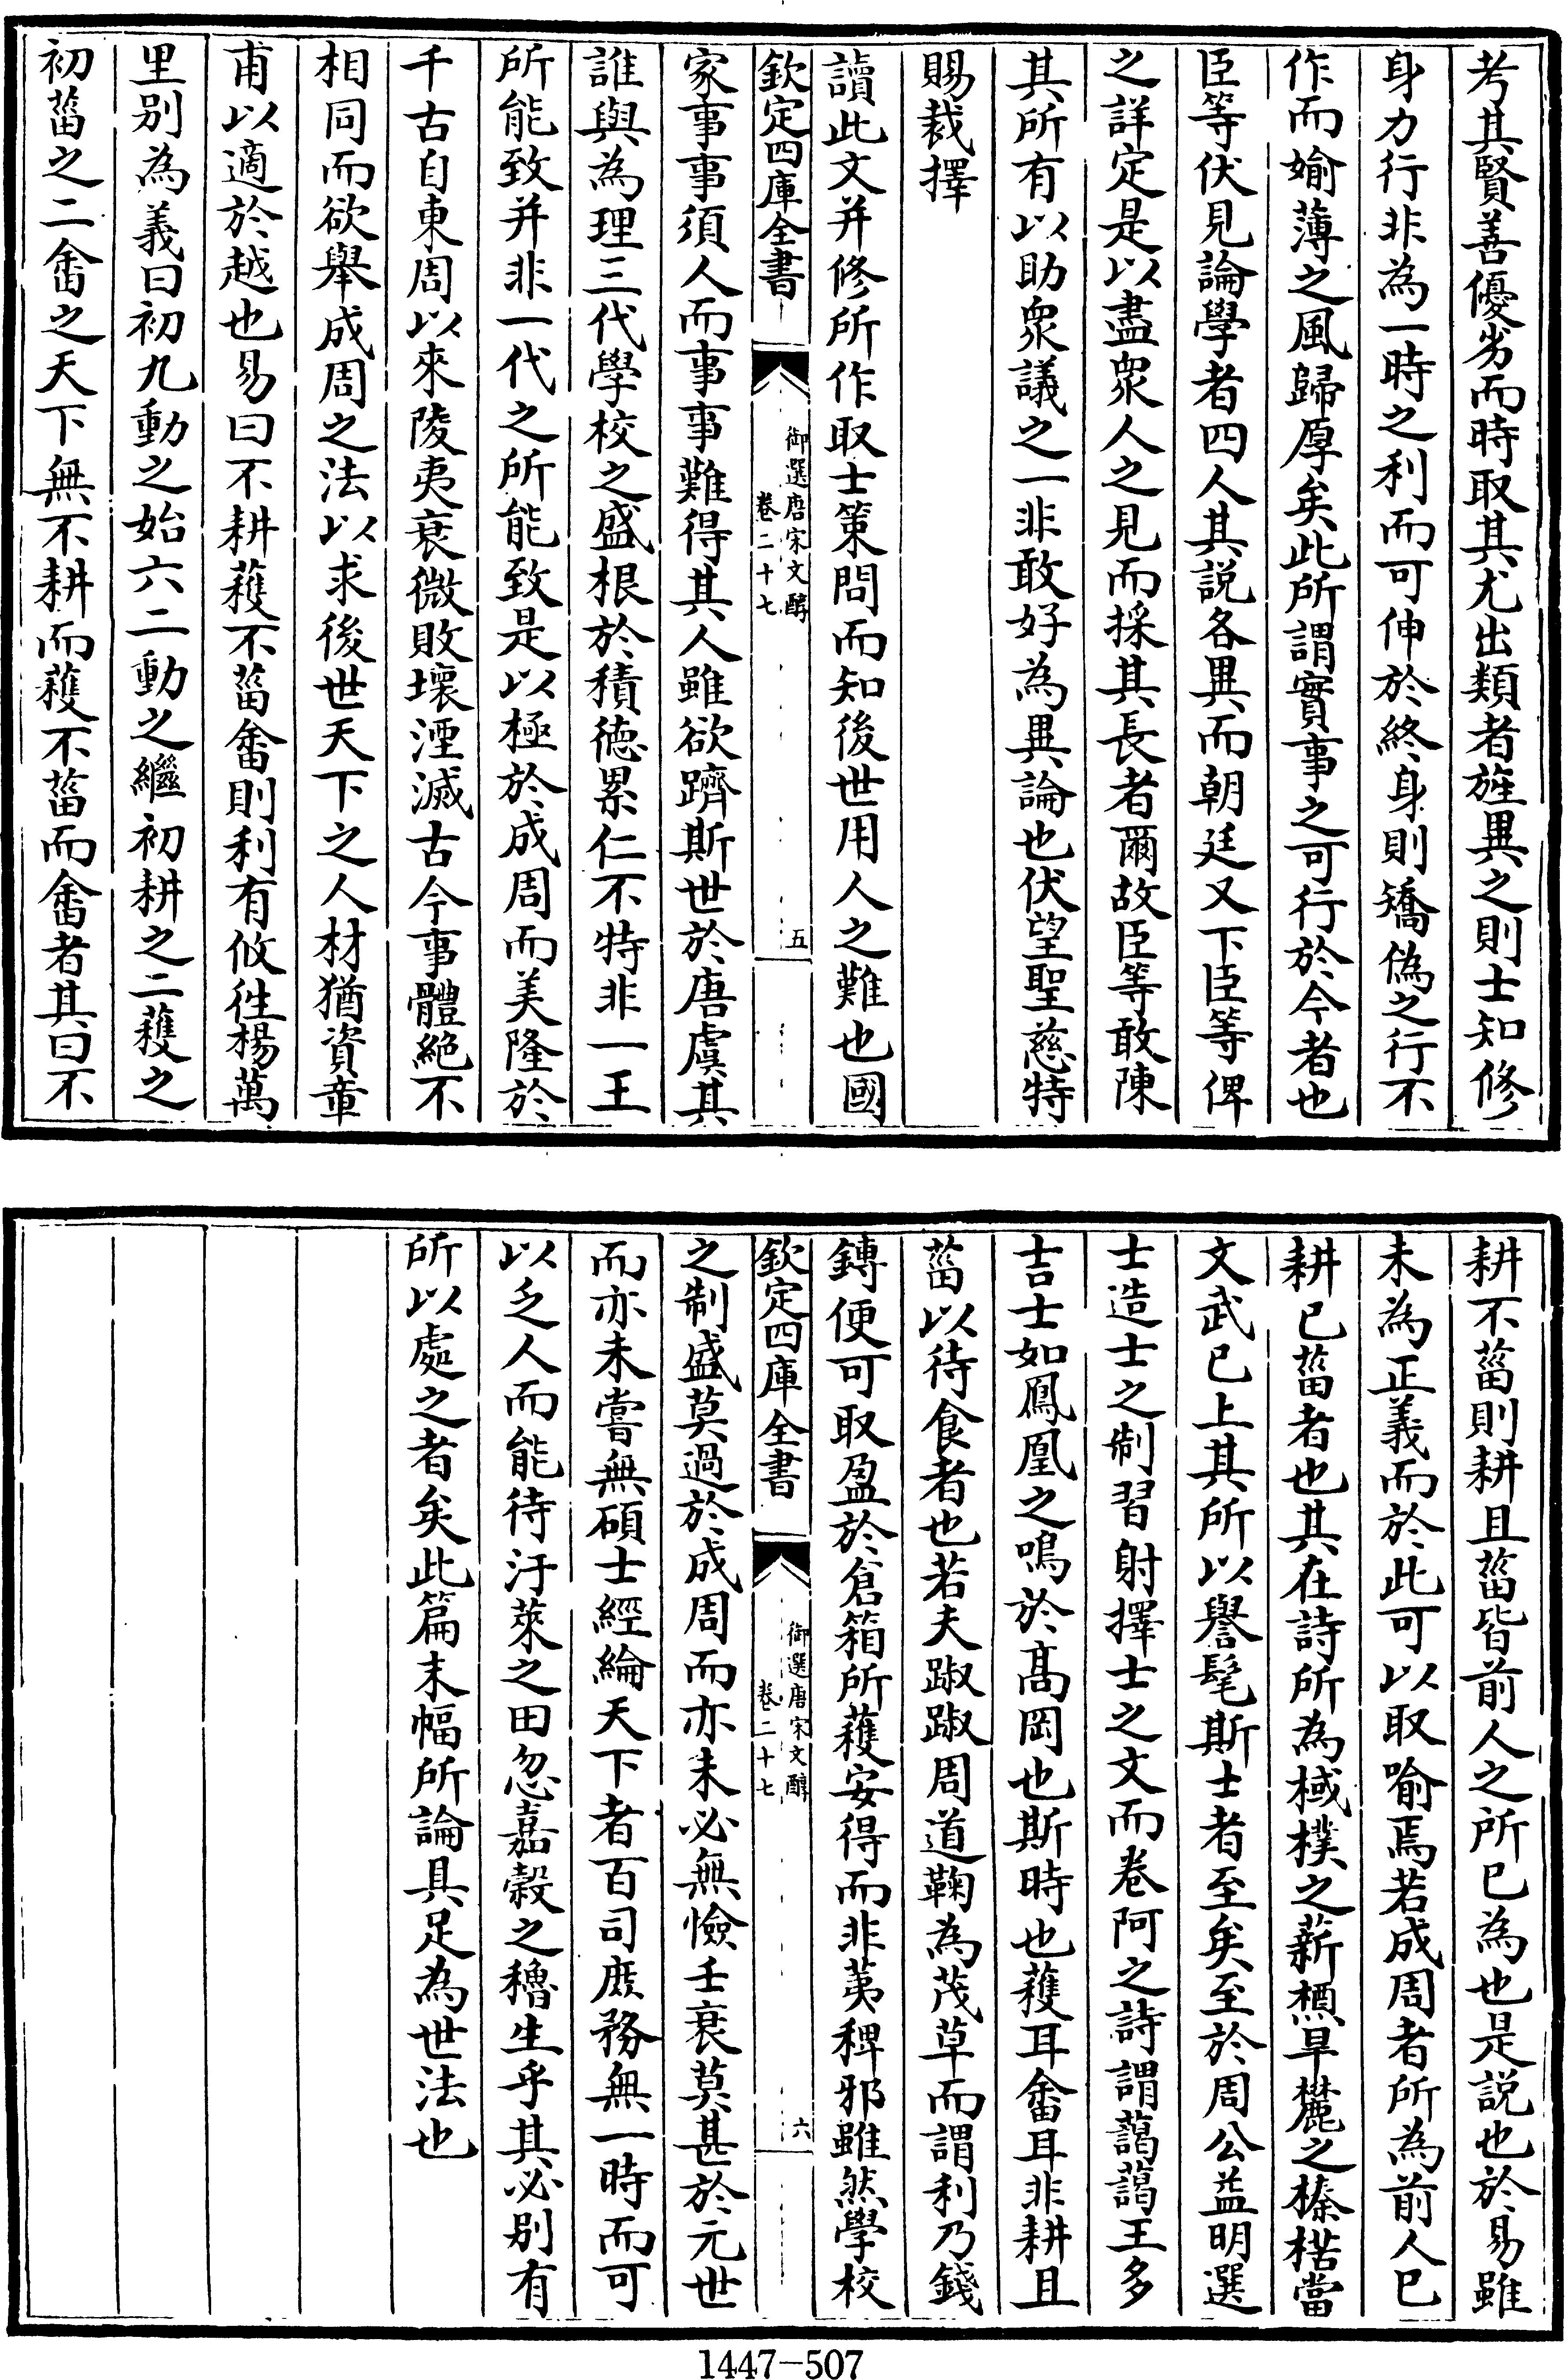 考其賢善優劣而時取其尤出類者旌異之則士知修
身力行非為一時之利而可伸於終身則矯偽之行不
作而媮薄之風歸厚矣此所謂實事之可行於今者也
臣等伏見論學者四人其説各異而朝廷又下臣等俾
之詳定是以盡衆人之見而採其長者爾故臣等敢陳
其所有以助衆議之一非敢好為異論也伏望聖慈特
賜裁擇
讀此文并修所作取士策問而知後世用人之難也國
欽定四庫全書
御選唐宋文醇
卷二十七
五
家事事須人而事事難得其人雖欲躋斯世於唐虞其
誰與為理三代學校之盛根於積徳累仁不特非一王
所能致并非一代之所能致是以極於成周而美隆於
千古自東周以來陵夷衰微敗壞湮滅古今事體絶不
相同而欲舉成周之法以求後世天下之人材猶資章
甫以適於越也易曰不耕穫不菑畬則利有攸徃楊萬
里别為義曰初九動之始六二動之繼初耕之二穫之
初菑之二畬之天下無不耕而穫不菑而畬者其曰不
耕不菑則耕且菑皆前人之所已為也是説也於易雖
未為正義而於此可以取喻焉若成周者所為前人已
耕已菑者也其在詩所為棫樸之薪槱旱麓之榛楛當
文武已上其所以譽髦斯士者至矣至於周公益明選
士造士之制習射擇士之文而卷阿之詩謂藹藹王多
吉士如鳳凰之鳴於髙岡也斯時也穫耳畬耳非耕且
菑以待食者也若夫踧踧周道鞠為茂草而謂利乃錢
鎛便可取盈於倉箱所穫安得而非荑稗邪雖然學校
欽定四庫全書
御選唐宋文醇
卷二十七
六
之制盛莫過於成周而亦未必無憸壬衰莫甚於元世
而亦未嘗無碩士經綸天下者百司庶務無一時而可
以乏人而能待汙萊之田忽嘉榖之穭生乎其必别有
所以處之者矣此篇末幅所論具足為世法也
1447-507